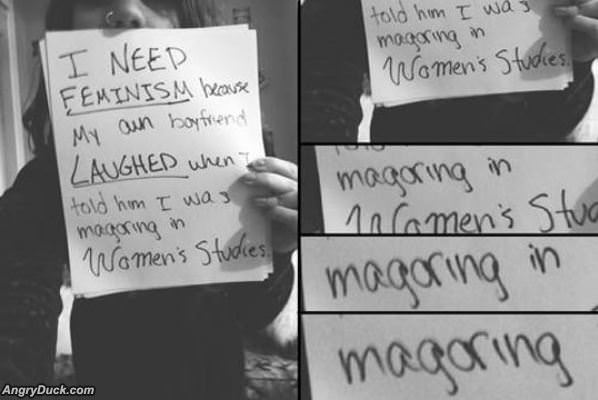 I NEED
FEMINISM because
My own boyfriend
LAUGHED when I
told him I was
magoring in
Women's Studies.
told him I was
magoring in
Women's Studies.
told
magoring in
Women's Stud
magoring in
magoring
AngryDuck.com